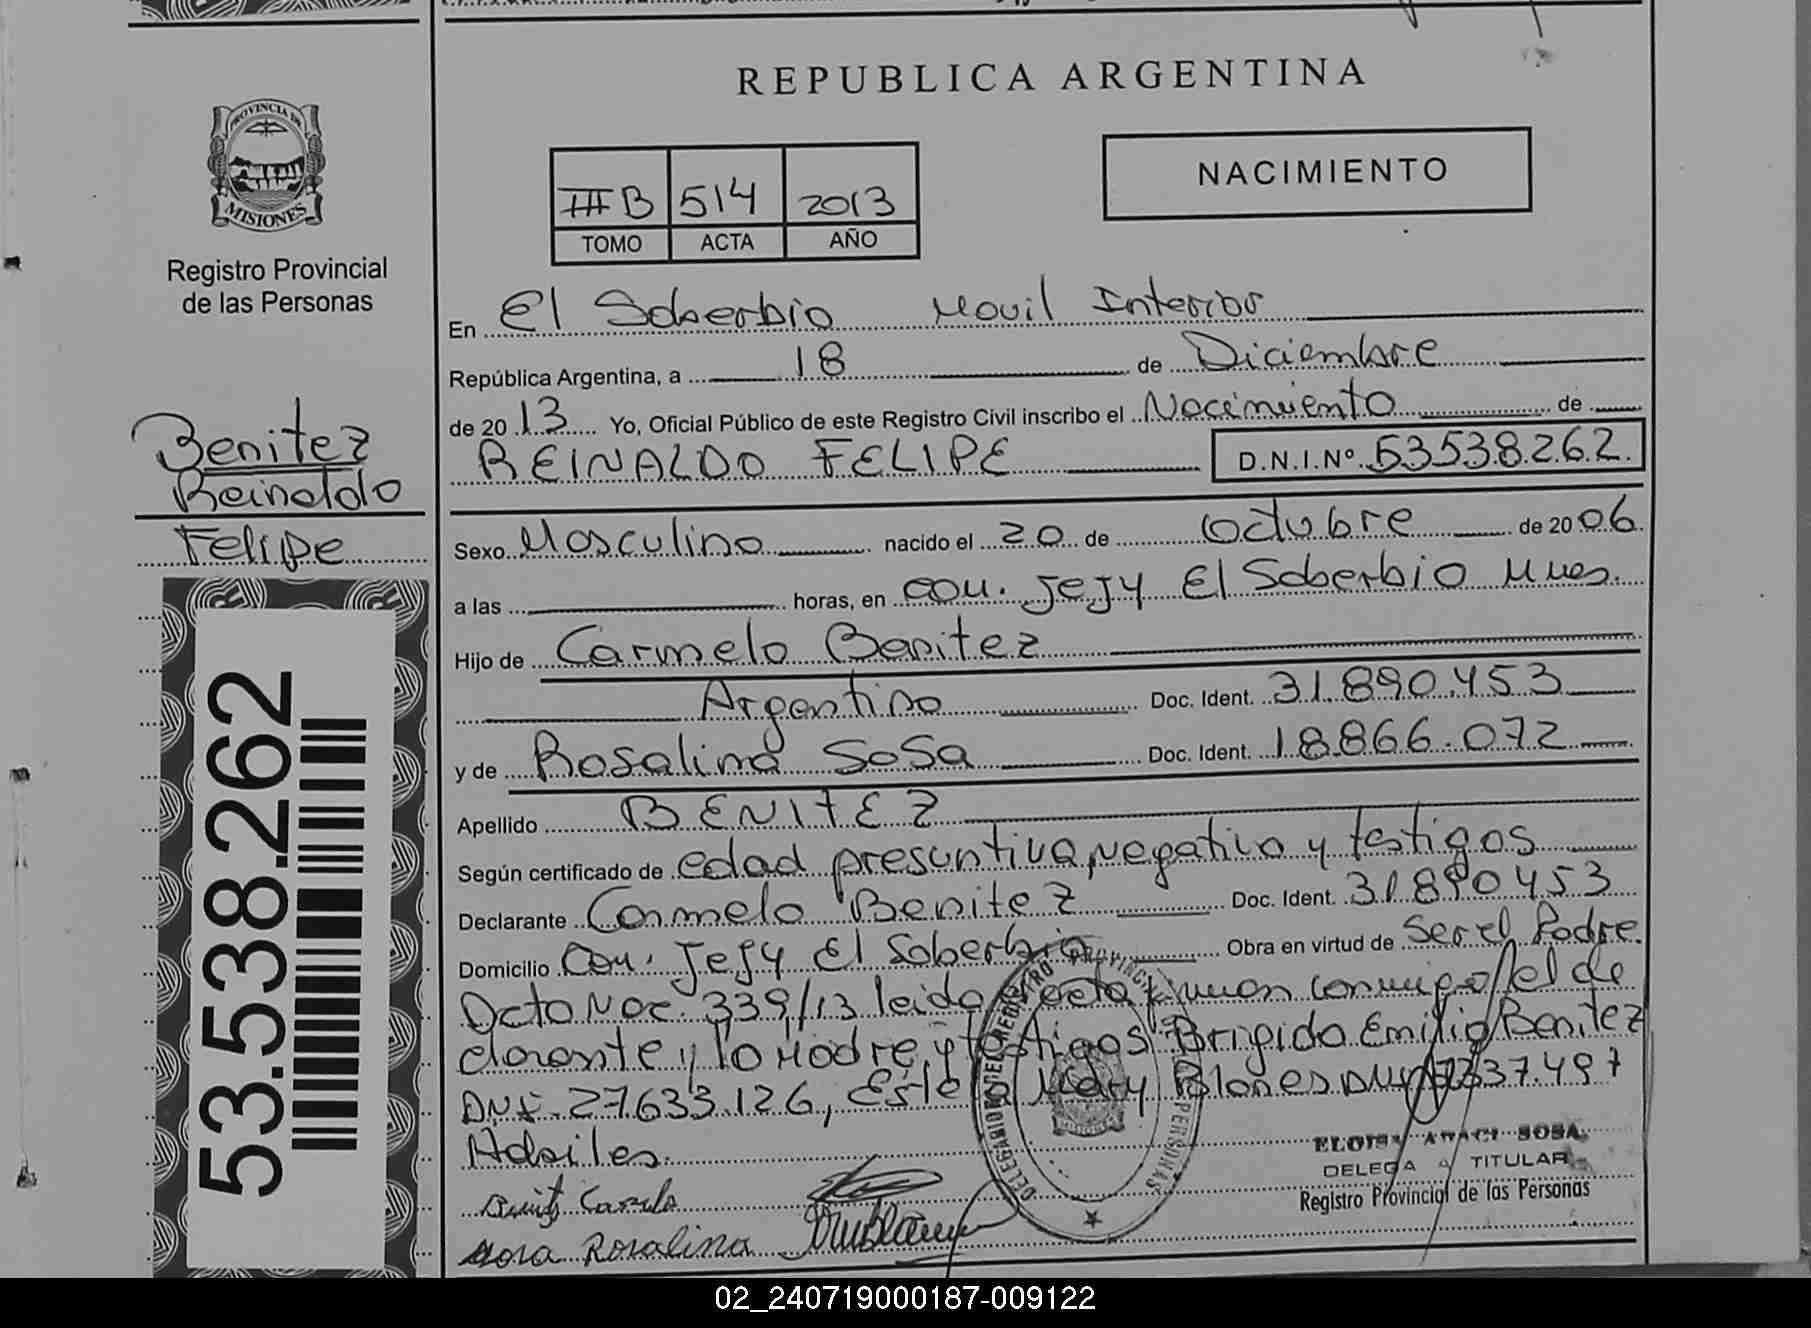 REPUBLICA ARGENTINA
PROVINCIA DE
MISIONES
Registro Provincial
de las Personas
III B 514 2013
TOMO ACTA AÑO
NACIMIENTO
En El Soberbio Movil Interior
República Argentina, a 18 de Diciembre
de 2013 Yo, Oficial Público de este Registro Civil inscribo el Nacimiento de
REINALDO FELIPE D.N.I.Nº 53538262
Benitez
Reinaldo
Felipe
Sexo Masculino nacido el 20 de Octubre de 2006
a las horas, en com. Jejy El Soberbio Mnes.
Hijo de Carmelo Benitez
Argentino Doc. Ident. 31.890.453
y de Rosalina Sosa Doc. Ident. 18866.072
Apellido BENITEZ
Según certificado de edad presuntiva, negativo y testigos
Declarante Carmelo Benitez Doc. Ident. 31.890453
Domicilio Com. Jejy El Soberbio Obra en virtud de Ser el Padre.
Acta Nac. 339/13 leida el acta firman conmigo el de
clarante y la Madre y testigos Brigido Emilio Benitez
DNI. 27633.126, Estela Mary Blanes DNI 337.497
Habiles
53.538.262
DELEGADA TITULAR
Registro Provincial de las Personas
ELOISA ARACI SOSA
sosa Rosalina
02_240719000187-009122